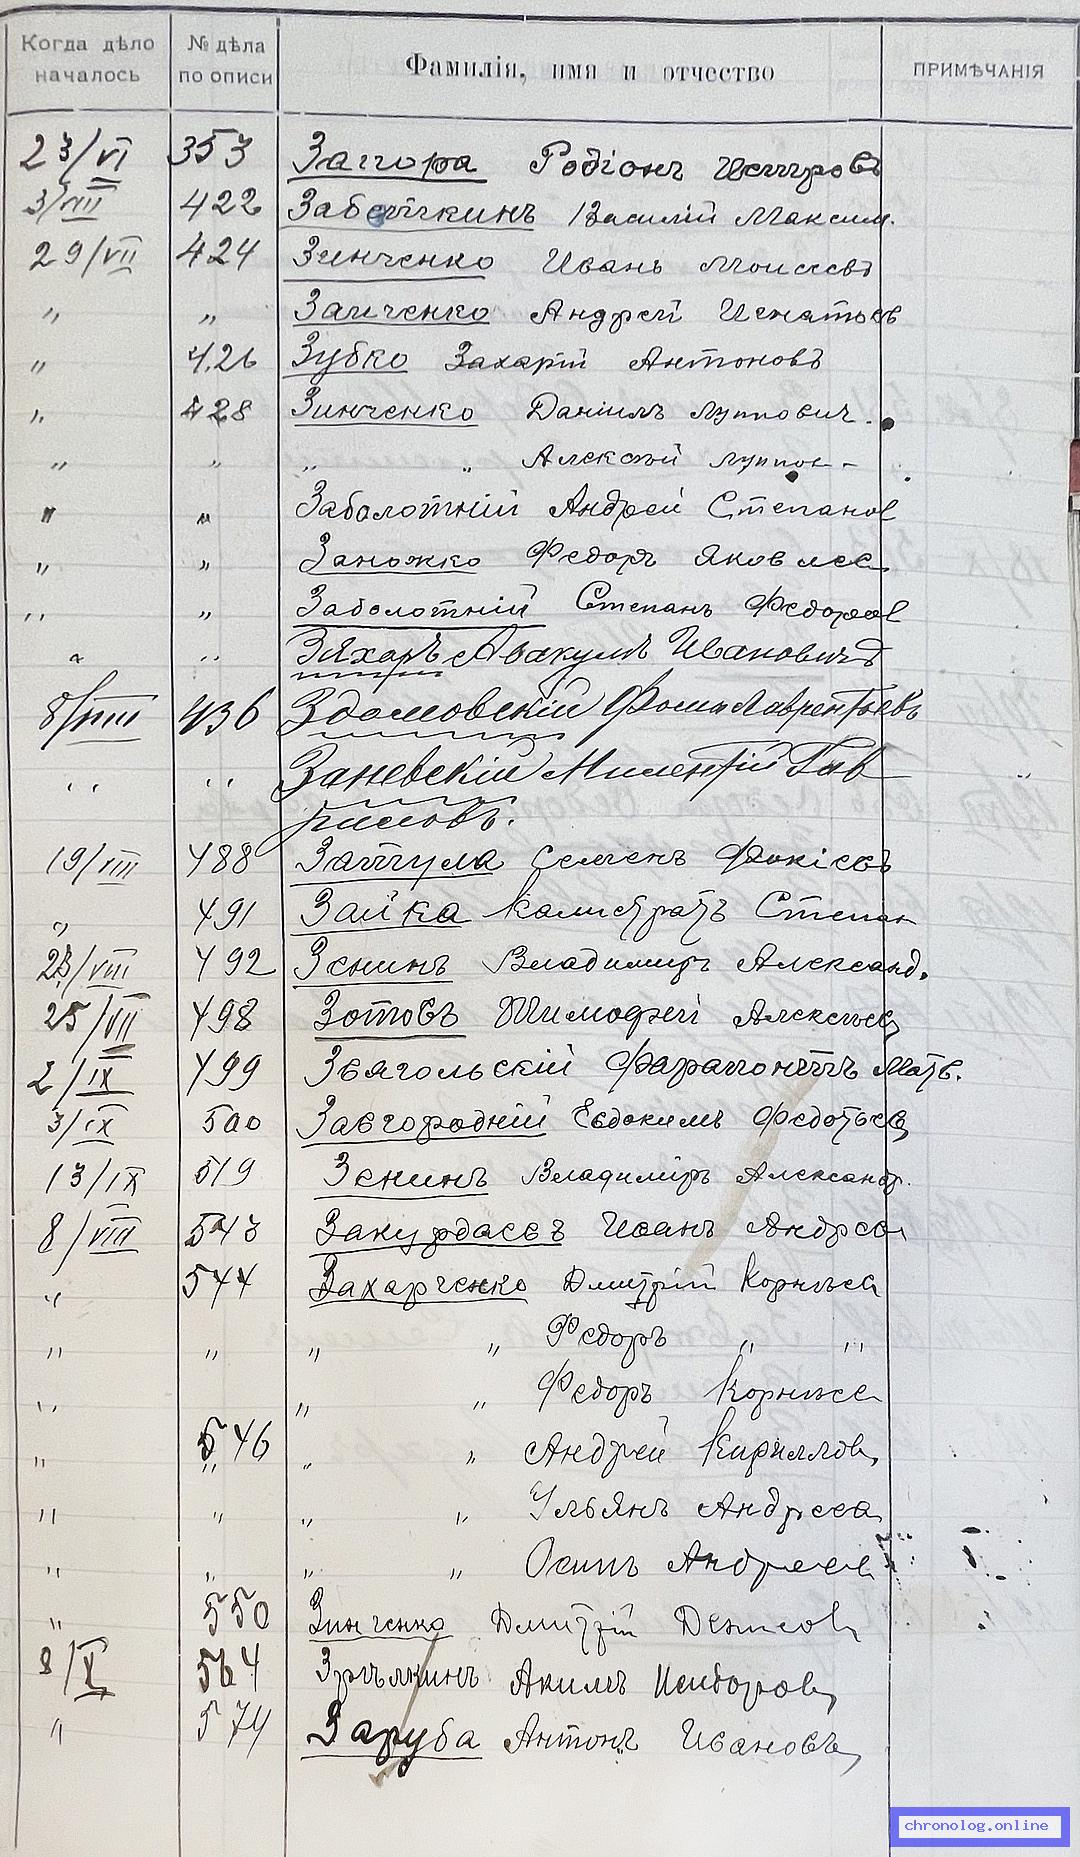 Когда дѣло началось
№ дѣла по описи
Фамилія, имя и отчество
ПРИМѢЧАНІЯ
23/VI 353 Загора Родіонъ
3/VIII 422 Василій Максим.
29/VII 424 Зинченко Иванъ Моисеевъ
" " Заиченко Андрей Игнатьев
" 426 Зубко Захарій Антоновъ
" 428 Зинченко Даніилъ Луппович.
" " " " Алексѣй Луппов-
" " Заболотній Андрей Степанов
" " Заножко Федоръ Яковлев
" " Заболотній Степанъ Федоров
" " Зяхоръ Авакумъ Ивановичъ
8/VIII 436 Здомовскій Фома Лаврентьевъ
" " Заневскій Милентій Гав
риловъ.
19/VIII 488 Затула Семенъ Фокіевъ
" 491 Зайка Калистратъ Степан
23/VIII 492 Зенинъ Владимиръ Александ.
25/VII 498 Зотовъ Тимофей Алексеев
2/IX 499 Звягольскій Фарапонтъ Матв.
3/IX 500 Завгородній Евдокимъ Федотьев
13/IX 519 Зенинъ Владиміръ Александр.
8/VIII 543 Закурдаевъ Иванъ Андреев
" 544 Захарченко Дмитрій Корнѣев
" " " " Федоръ " "
" " " " Федоръ Корнѣев
" 546 " " Андрей Кириллов
" " " " Ульянъ Андреев
" " " " Осипъ Андреев
" 550 Зинченко Дмитрій Денисов
8/X 564 Акимъ Исидоров
" 574 Заруба Антонъ Ивановъ
chronolog.online